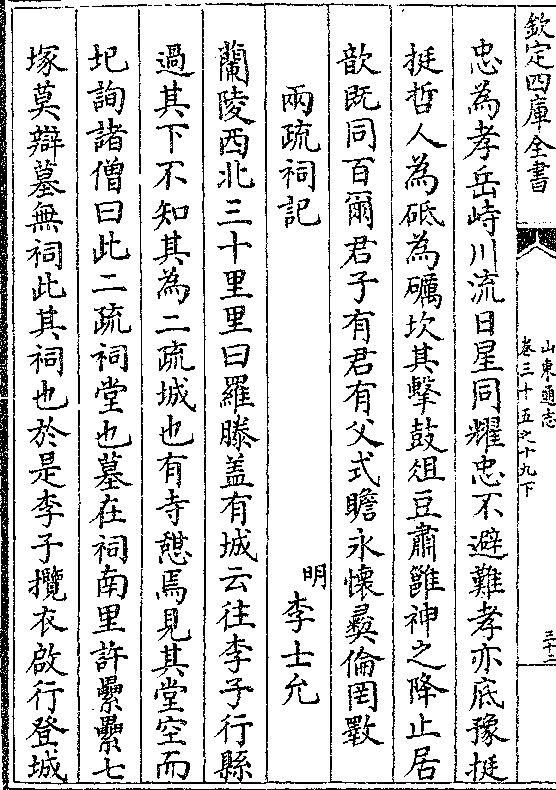 欽定四庫全書
山東通志
卷三十五之十九下
三十二
忠為孝岳峙川流日星同耀忠不避難孝亦底豫挺
挺哲人為砥為礪坎其擊鼓俎豆肅雝神之降止居
歆既同百爾君子有君有父式瞻永懷彞倫罔斁
兩疏祠記
明李士允
蘭陵西北三十里里曰羅滕盖有城云往李子行縣
過其下不知其為二疏城也有寺憇焉見其堂空而
圮詢諸僧曰此二疏祠堂也墓在祠南里許纍纍七
塚莫辯墓無祠此其祠也於是李子攬衣啟行登城